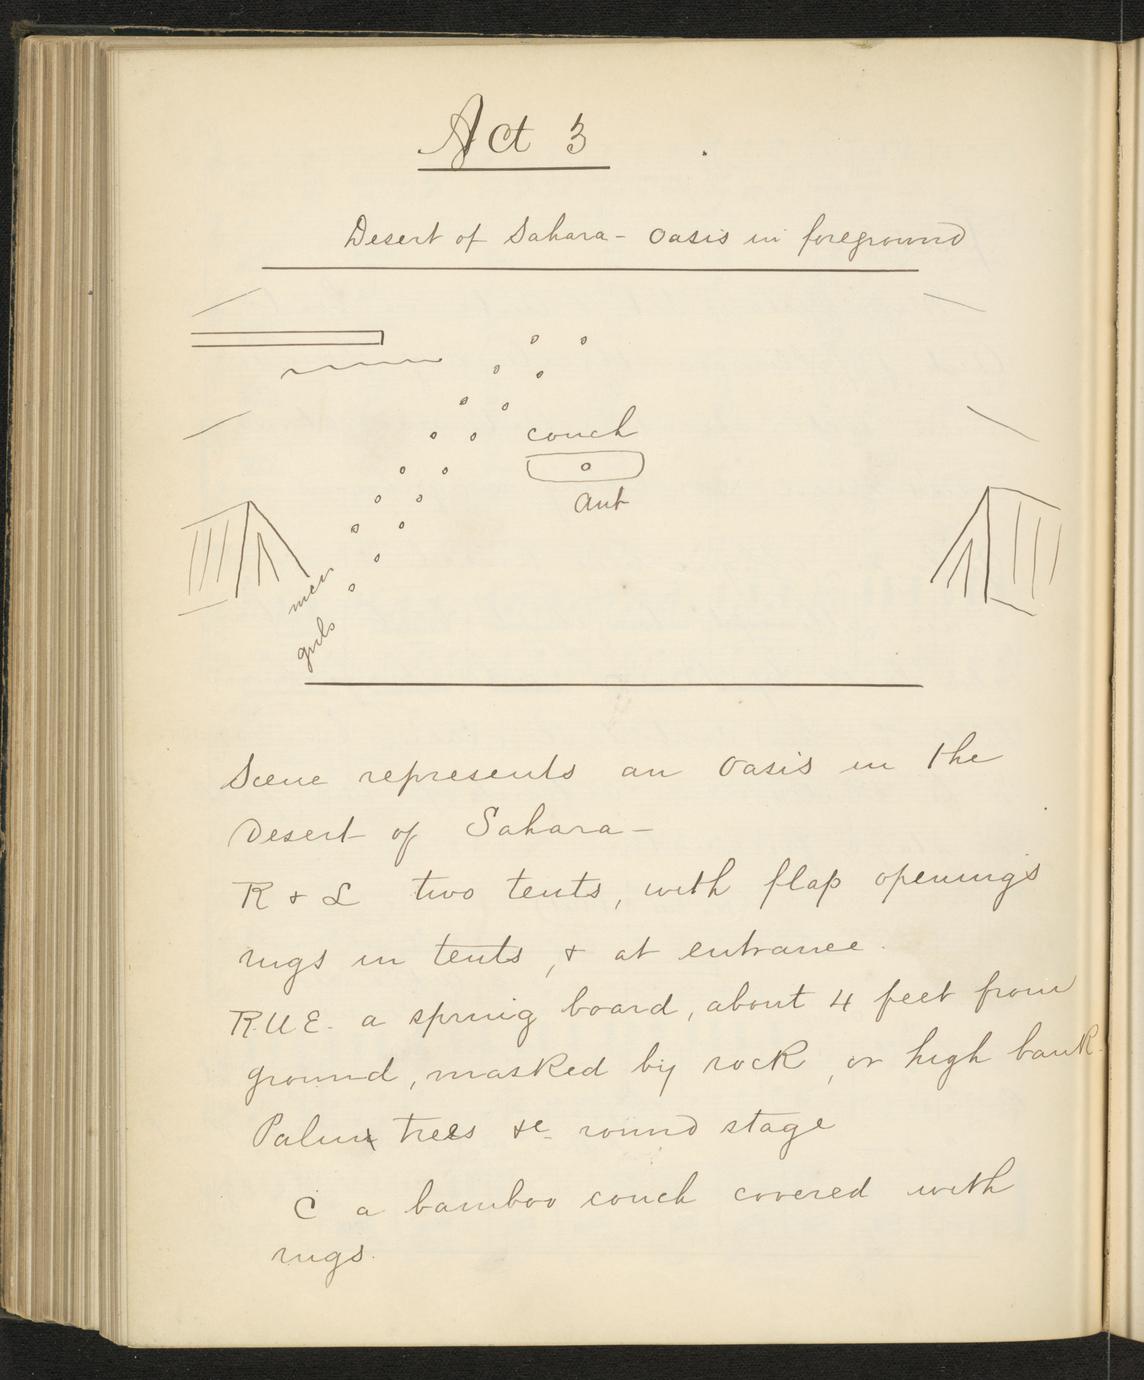 Act 3
Desert of Sahara - Oasis in foreground
couch
Ant
men
girls
Scene represents an Oasis in the
Desert of Sahara -
R + L two tents, with flap openings
rugs in tents, + at entrance.
R.U.E. a spring board, about 4 feet from
ground, masked by rock, or high bank.
Palm trees &c round stage
C a bamboo couch covered with
rugs.